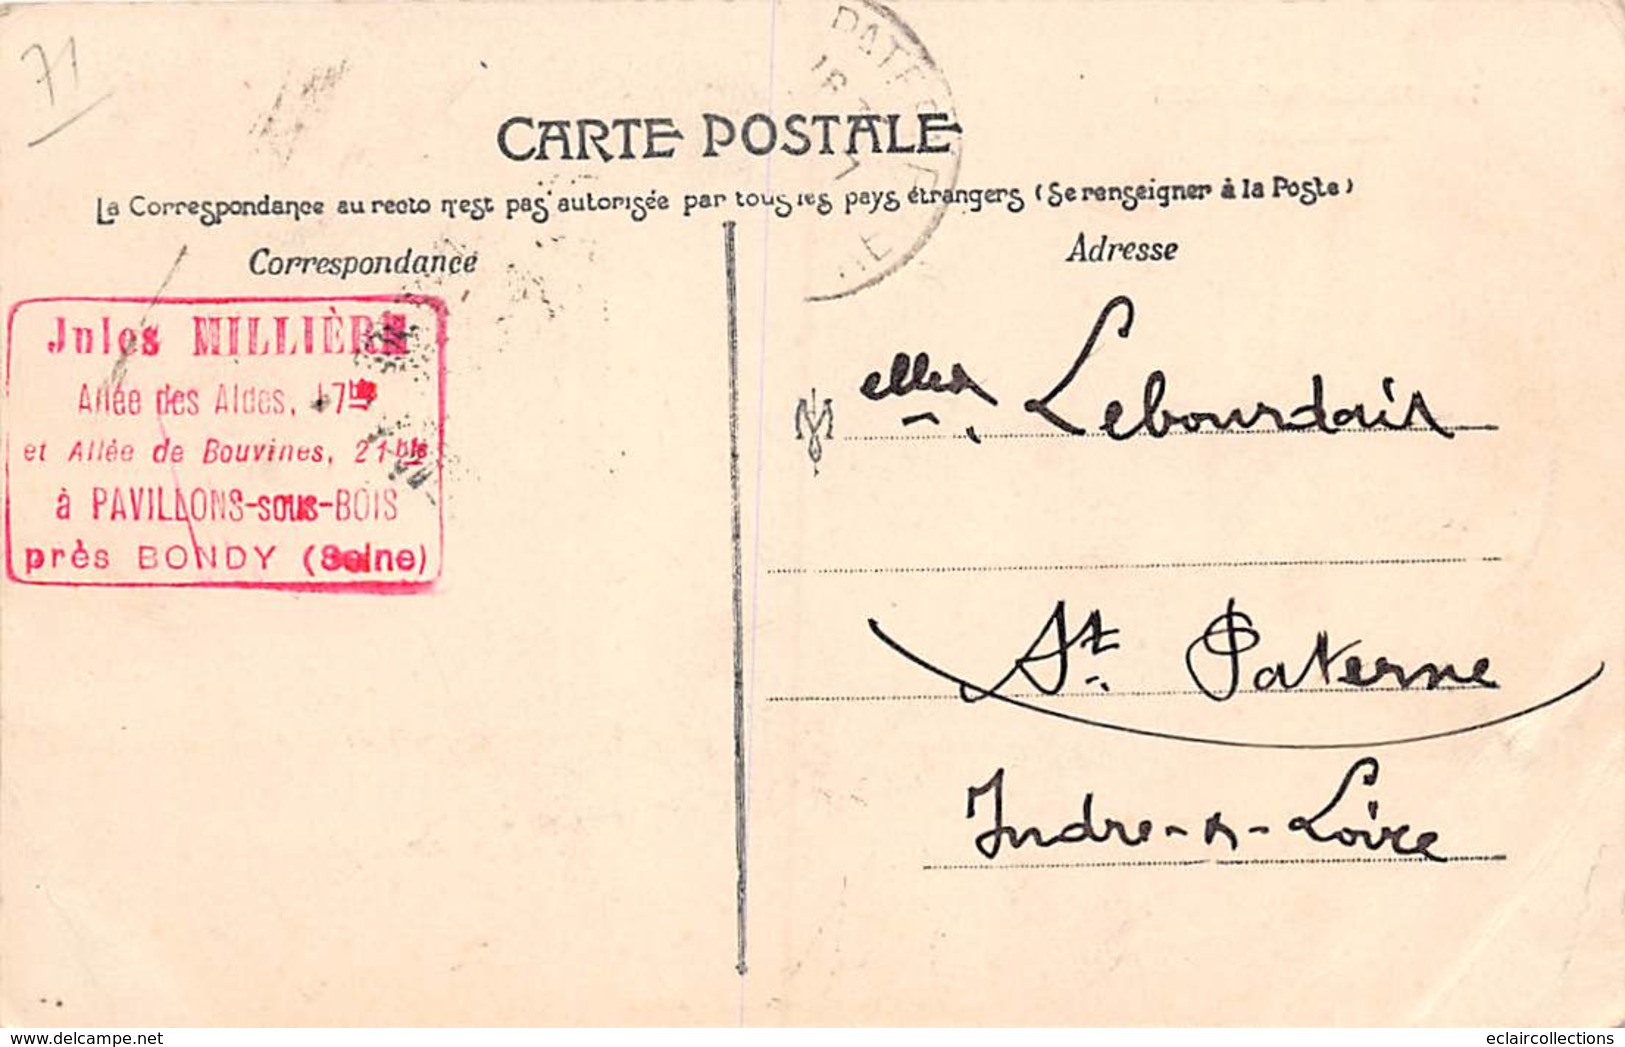 71
CARTE POSTALE
La Correspondance au recto n'est pas autorisée par tous les pays étrangers (Se renseigner à la Poste)
Correspondance
Adresse
Jules MILLIÈRE
Allée des Aldes, 17bis
et Allée de Bouvines, 21bis
à PAVILLONS-sous-BOIS
près BONDY (Seine)
elles Lebourdais
St. Paterne
Indre-&-Loire
eclaircollections